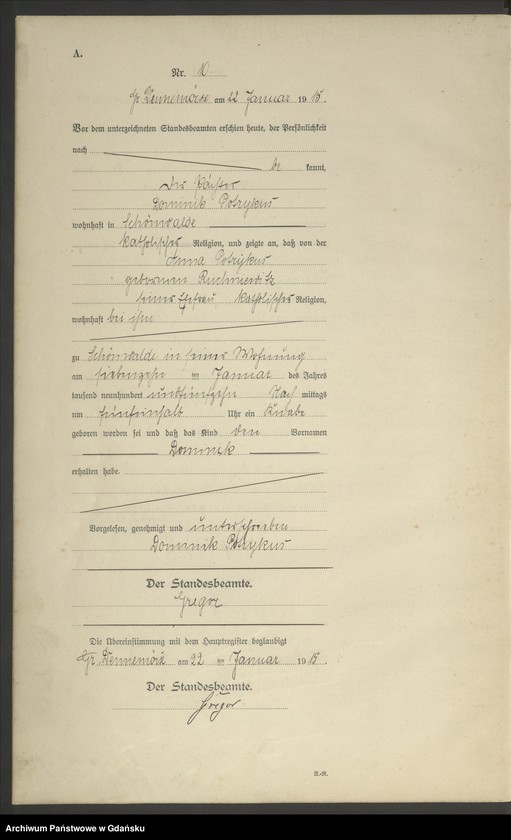 A.
Nr. 10
Gr. Dennemörse am 22 Januar 1915.
Vor dem unterzeichneten Standesbeamten erschien heute, der Persönlichkeit
nach
be kannt,
der Pächter
Dominik Potrykus
wohnhaft in Schönwalde
katholischer Religion, und zeigte an, daß von der
Anna Potrykus
geborenen
seiner Ehefrau katholischer Religion,
wohnhaft bei ihm
zu Schönwalde in seiner Wohnung
am siebenzehn ten Januar des Jahres
tausend neunhundert undfünfzehn Nach mittags
um fünfeinhalb Uhr ein Knabe
geboren worden sei und daß das Kind den Vornamen
Dominik
erhalten habe.
Vorgelesen, genehmigt und unterschrieben
Dominik Potrykus
Der Standesbeamte.
Gregor
Die Übereinstimmung mit dem Hauptregister beglaubigt
Gr. Dennemörse am 22 ten Januar 1915.
Der Standesbeamte.
Gregor
R.-R.
Archiwum Państwowe w Gdańsku